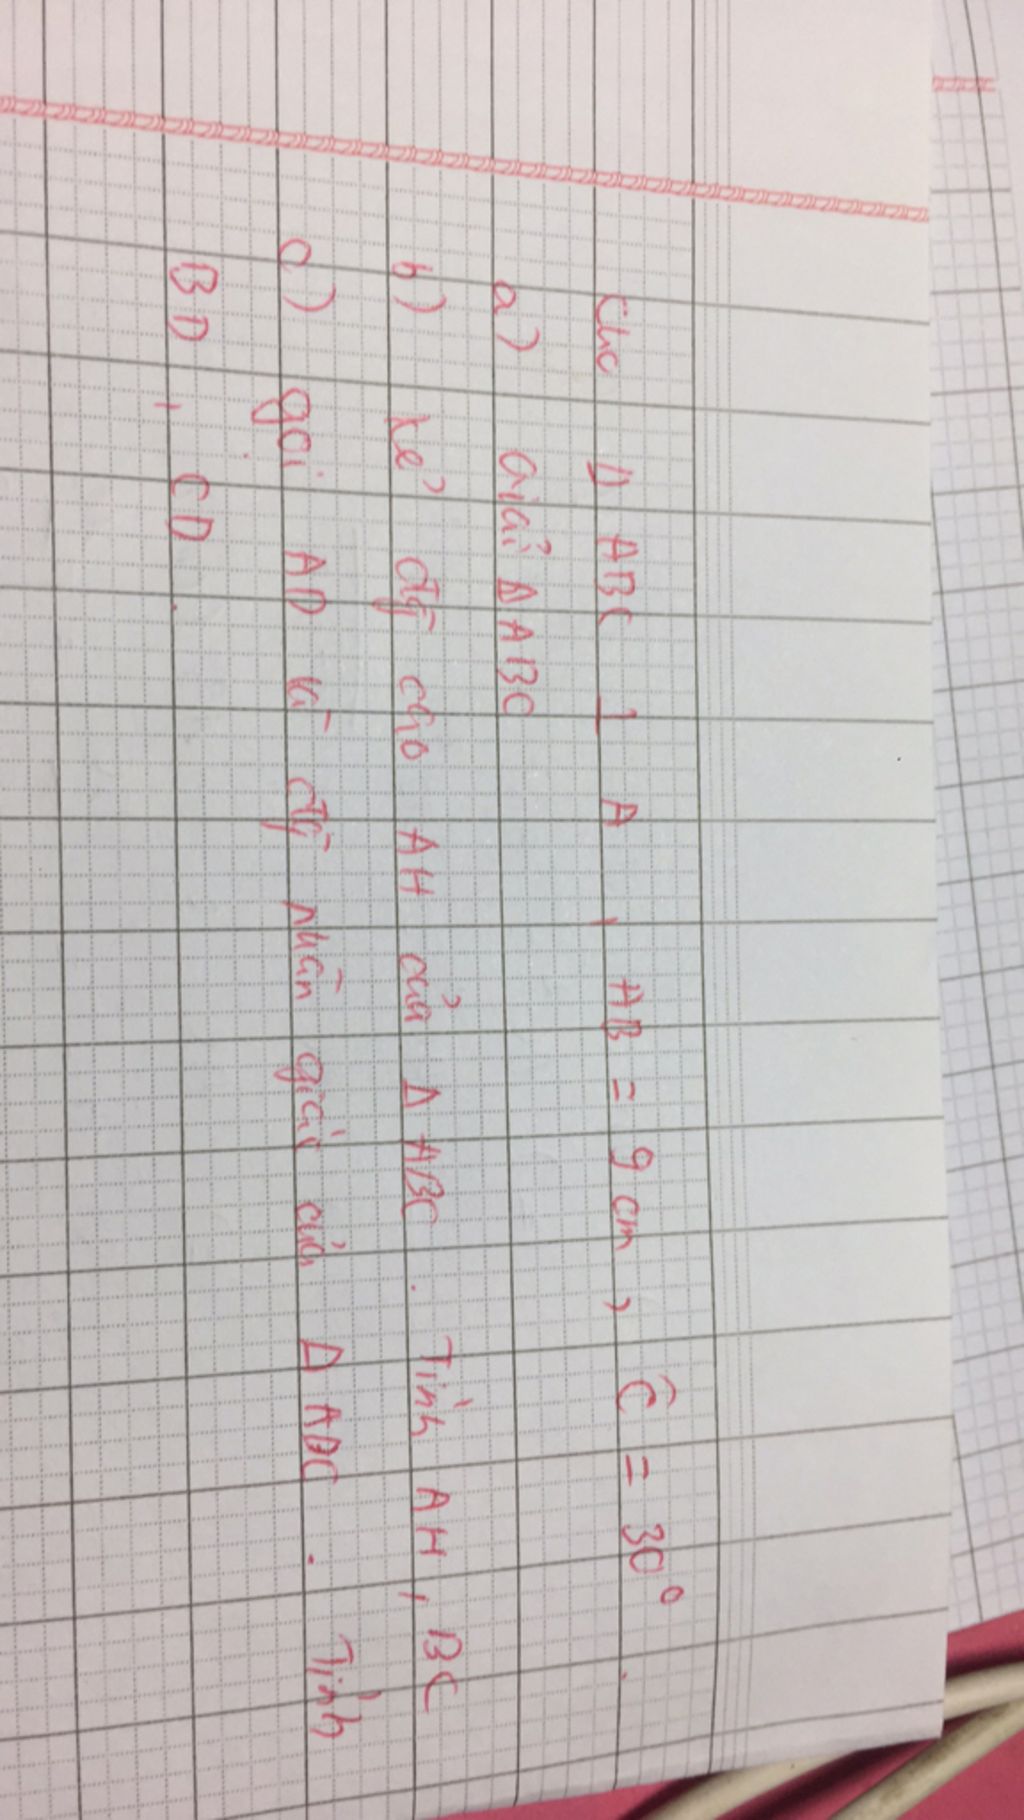 Cho Δ ABC ⊥ A , AB = 9 cm , Ĉ = 30°.
a) Giải Δ ABC
b) kẻ đg cao AH của Δ ABC . Tính AH , BC
c) gọi AD là đg phân giác của Δ ABC . Tính
BD , CD .